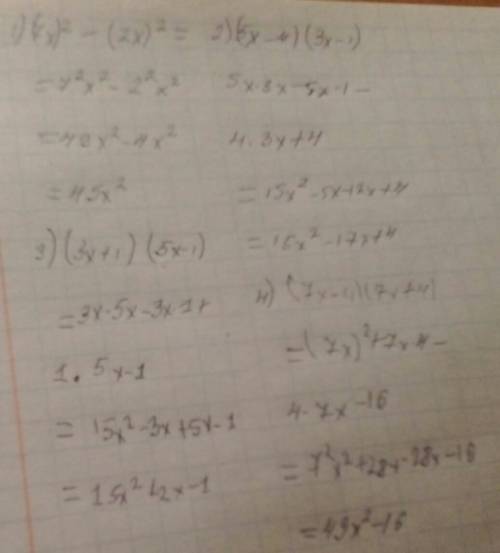 1) (7x)² - (2x)² =
= 7²x² - 2²x²
= 49x² - 4x²
= 45x²
2) (5x-4)(3x-1)
5x·3x - 5x·1 -
4·3x+4
= 15x² - 5x-12x+4
= 15x² - 17x+4
3) (3x+1)(5x-1)
= 3x·5x - 3x·1+
1·5x-1
= 15x² - 3x+5x-1
= 15x²+2x-1
4) (7x-4)(7x+4)
= (7x)²+7x·4-
4·7x-16
= 7²x²+28x-28x-16
= 49x²-16